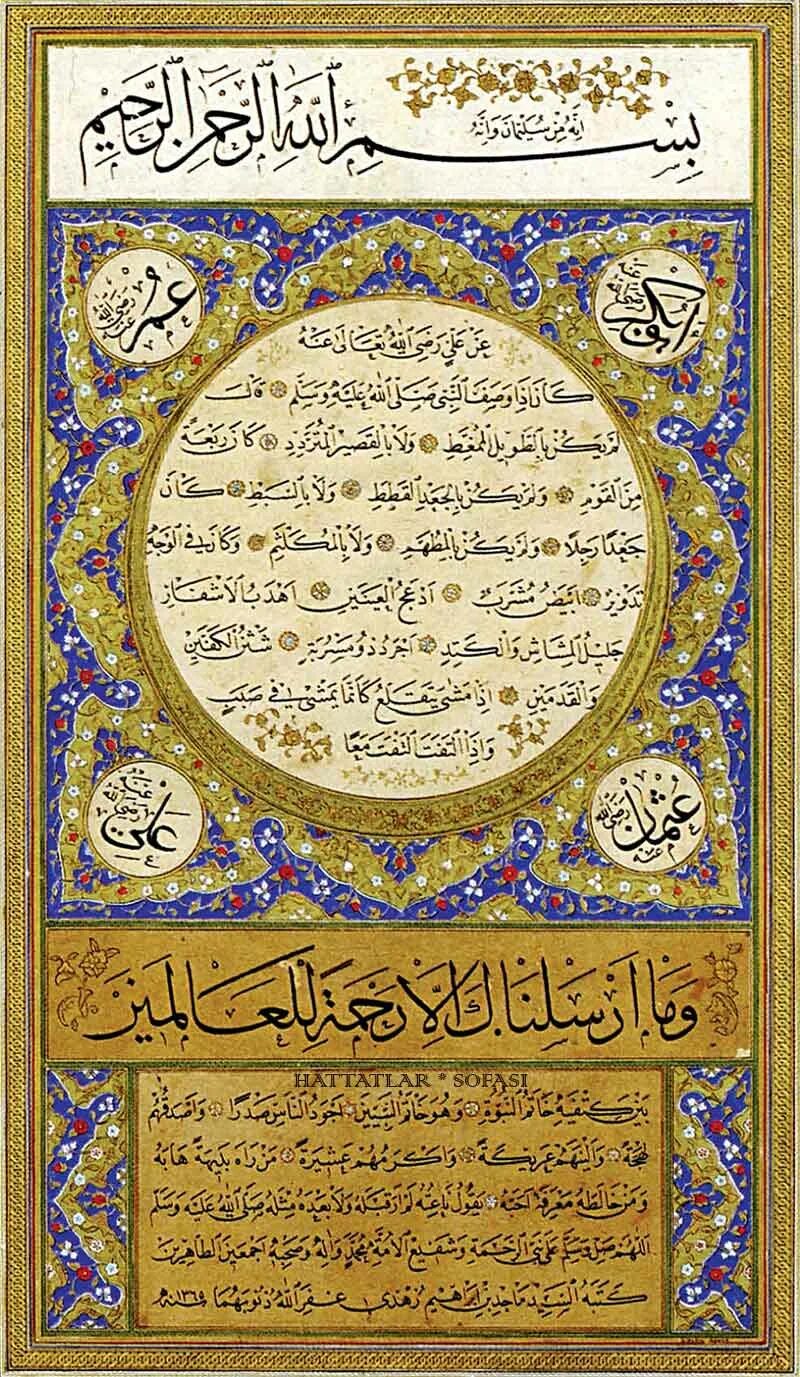 انه من سليمان وانه
بسم الله الرحمن الرحيم
ابوبكر رضى الله عنه
عمر رضى الله عنه
عن علي رضى الله تعالى عنه
كان اذا وصف النبى صلى الله عليه وسلم قال
لم يكن بالطويل الممغط ولا بالقصير المتردد كان ربعة
من القوم ولم يكن بالجعد القطط ولا بالسبط كان
جعدا رجلا ولم يكن بالمطهم ولا بالمكلثم وكان فى الوجه
تدوير ابيض مشرب ادعج العينين اهدب الاشفار
جليل المشاش والكتد اجرد ذو مسربة شثن الكفين
والقدمين اذا مشى يتقلع كأنما يمشى فى صبب
واذا التفت التفت معا
عثمان رضى الله عنه
على رضى الله عنه
وما ارسلناك الا رحمة للعالمين
HATTATLAR * SOFASI
بين كتفيه خاتم النبوة وهو خاتم النبيين اجود الناس صدرا واصدقهم
لهجة والينهم عريكة واكرمهم عشيرة من راه بديهة هابه
ومن خالطه معرفة احبه يقول ناعته لم ار قبله ولا بعده مثله صلى الله عليه وسلم
اللهم صل وسلم على نبى الرحمة وشفيع الامة محمد واله وصحبه اجمعين الطاهرين
كتبه السيد ماجد بن ابراهيم زهدى غفر الله ذنوبهما سنه ١٣٦٥